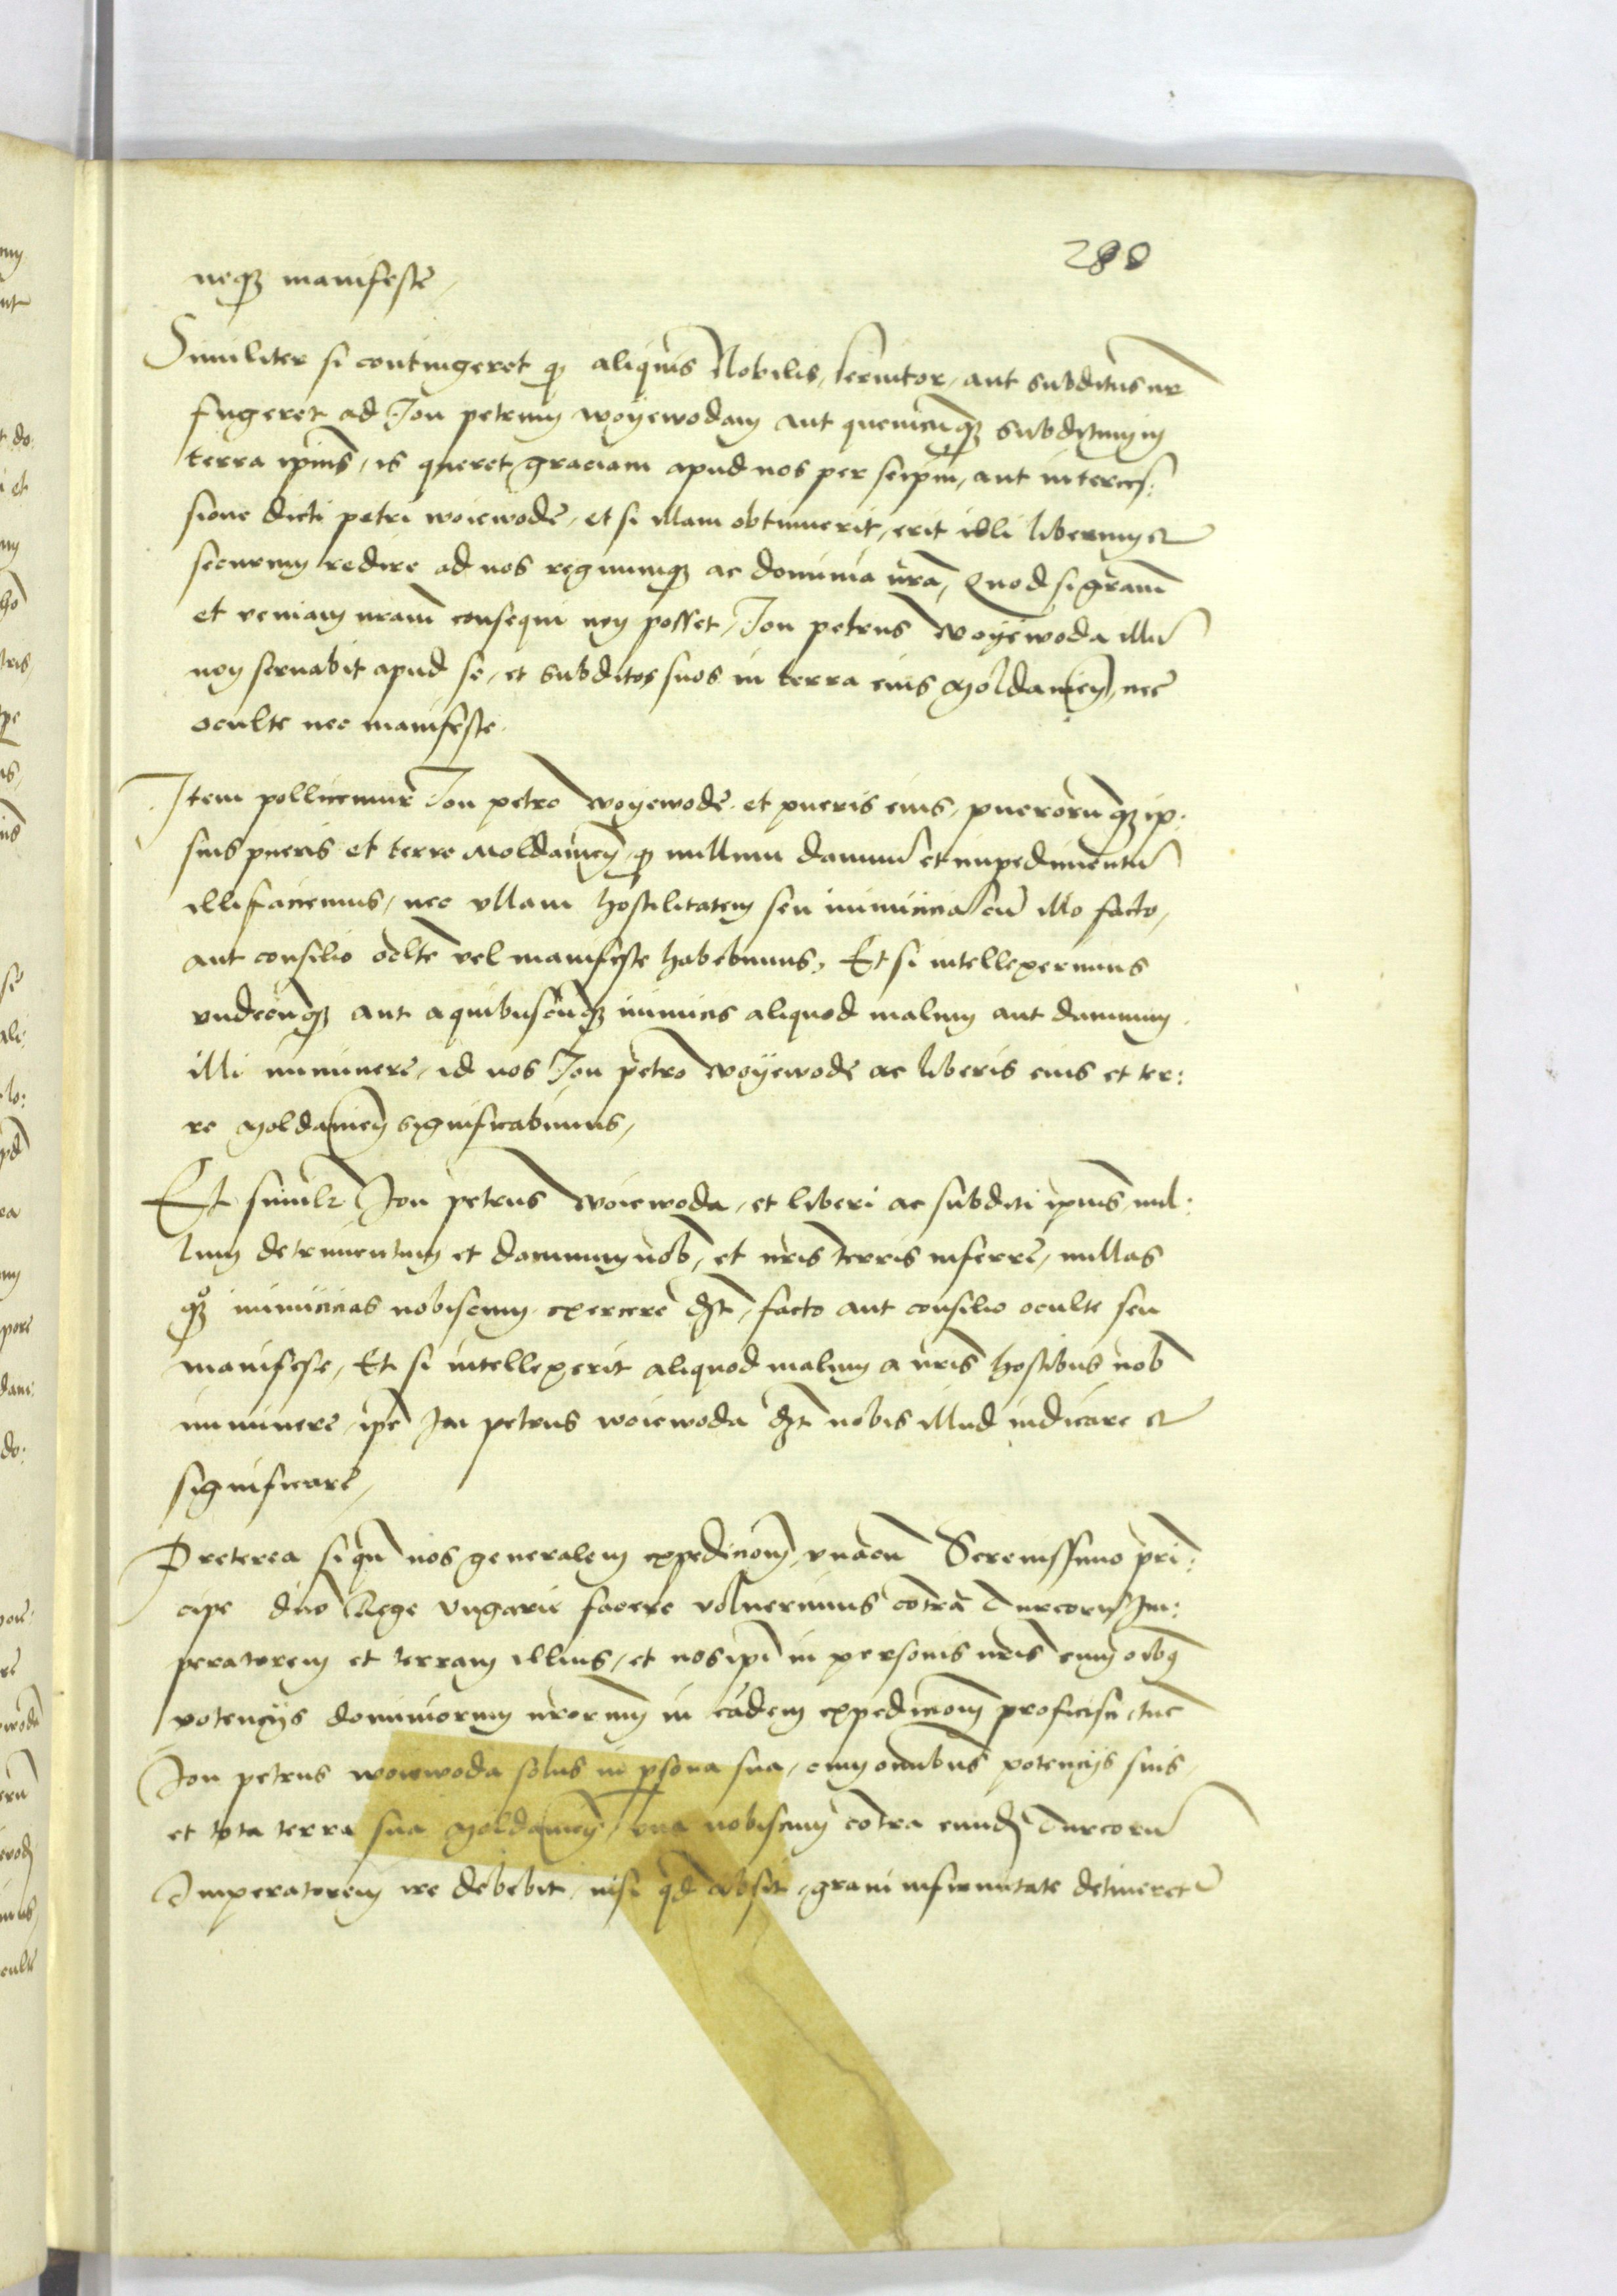 280
neq3 manifeste,
Similiter si contingeret q aliquis Nobilis, seruitor, aut subditus nr
fugeret ad Jon petrum woyewodam aut quemcunq3 subditum in
terra ipius, is queret graciam apud nos per seipm, aut interces:
sione dicti petri woiewode, et si illam obtinuerit, erit illi liberum et
securum redire ad nos regnumq3 ac dominia nra, Quod si gram
et veniam nram consequi non posset, Jon petrus Woyewoda illu
non seruabit apud se, et subditos suos in terra eius Moldauien, nec
oculte nec manifeste.
Item pollicemur Jon petro Woyewode et pueris eius, puerorūq3 ip:
sius pueris et terre Moldauien, q nullum damnū et impedimentū
illi faciemus, nec vllam hostilitatem seu inimicicia cū illo facto,
aut consilio oclte vel manifeste habebimus, Et si intellexerimus
vndecūq3 aut a quibuscūq3 inimicis aliquod malum aut damnum
illi imminere, id nos Jon petro Woyewode ac liberis eius et ter:
re Moldauien significabimus,
Et similr Jon petrus Woiewoda, et liberi ac subditi ipius nul:
lum detrimentum et damnum nob, et nris terris inferre, nullas
q3 inimicicias nobiscum exercere dzt, facto aut consilio oculte seu
manifeste, Et si intellexerit aliquod malum a nris hostibus nob
imminere, ipe Jon petrus woiewoda dzt nobis illud indicare et
significare,
Preterea si qn nos generalem expedicionē, vnacū Serenissimo prin:
cipe dno Rege Vngarie facere voluerimus cōtra Turcorū Im:
peratorem et terram illius, et nos ipi in personis nris cum oibq
potencijs dominiorum nrorum in eadem expedicionē proficisci, tūc
Jon petrus woiewoda solus in psona sua, cum omnibus potencijs suis,
et tota terra sua Moldauien, vna nobiscum cōtra eundē Turcorū
Imperatorem ire debebit, nisi qd absit, graui infirmitate detineretur